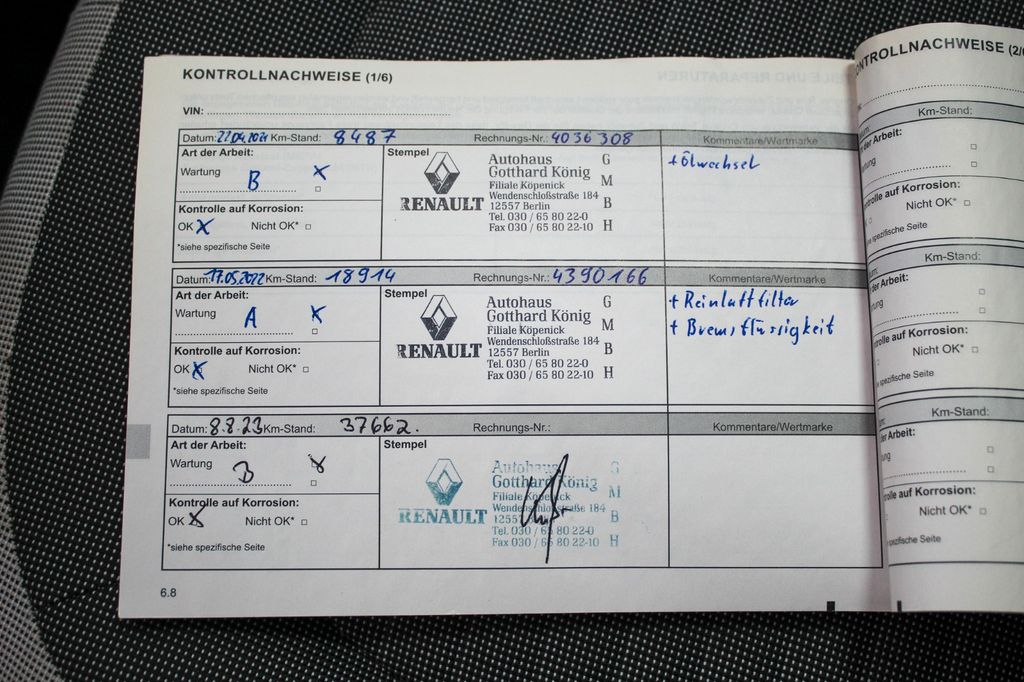 KONTROLLNACHWEISE (1/6)
VIN:
Datum: 22.04.2021 Km-Stand: 8487 Rechnungs-Nr.: 4036308 Kommentare/Wertmarke
Art der Arbeit:
Wartung B X
Kontrolle auf Korrosion:
OK X Nicht OK*
*siehe spezifische Seite
Stempel
RENAULT
Autohaus G
Gotthard König
Filiale Köpenick M
Wendenschloßstraße 184
12557 Berlin B
Tel. 030 / 65 80 22-0
Fax 030 / 65 80 22-10 H
+ Ölwechsel
Datum: 17.05.2022 Km-Stand: 18914 Rechnungs-Nr.: 4390166 Kommentare/Wertmarke
Art der Arbeit:
Wartung A X
Kontrolle auf Korrosion:
OK X Nicht OK*
*siehe spezifische Seite
Stempel
RENAULT
Autohaus G
Gotthard König
Filiale Köpenick M
Wendenschloßstraße 184
12557 Berlin B
Tel. 030 / 65 80 22-0
Fax 030 / 65 80 22-10 H
+ Reinluftfilter
+ Bremsflüssigkeit
Datum: 8.8.23 Km-Stand: 37662. Rechnungs-Nr.: Kommentare/Wertmarke
Art der Arbeit:
Wartung B X
Kontrolle auf Korrosion:
OK X Nicht OK*
*siehe spezifische Seite
Stempel
RENAULT
Autohaus G
Gotthard König
Filiale Köpenick M
Wendenschloßstraße 184
1255 B
Tel. 030 / 65 80 22-0
Fax 030 / 65 80 22-10 H
6.8
ONTROLLNACHWEISE (2/6
Km-Stand:
der Arbeit:
Wartung
trolle auf Korrosion:
Nicht OK*
spezifische Seite
Km-Stand:
der Arbeit:
rtung
trolle auf Korrosion:
Nicht OK*
spezifische Seite
Km-Stand:
der Arbeit:
tung
trolle auf Korrosion:
Nicht OK*
spezifische Seite